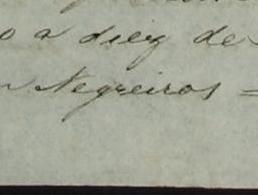 o a diez de
Negreiros =